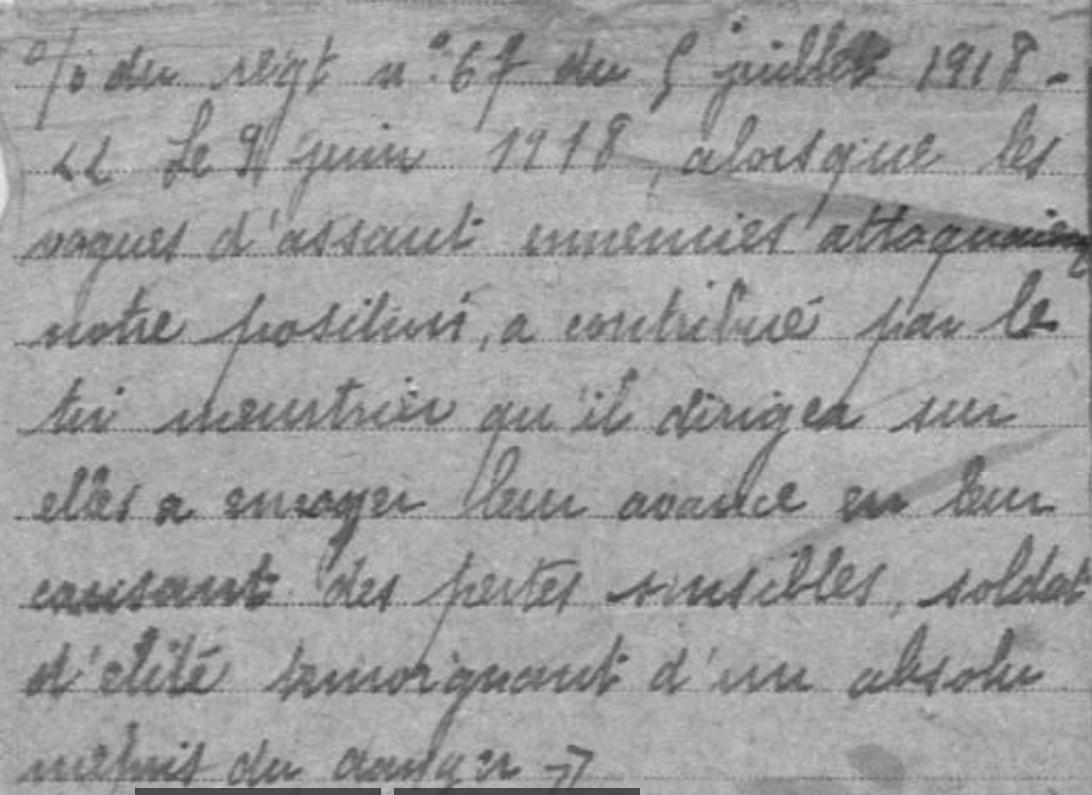 o/o du régt n° 67 du 5 juillet 1918 -
<< Le 9 juin 1918, alorsque les
vagues d'assaut ennemies attaquaient
notre position, a contribué par le
tir meurtrier qu'il dirigea sur
elles a enrayer leur avance en leur
causant des pertes sensibles, soldat
d'élité temoignant d'un absolu
mépris du danger >>